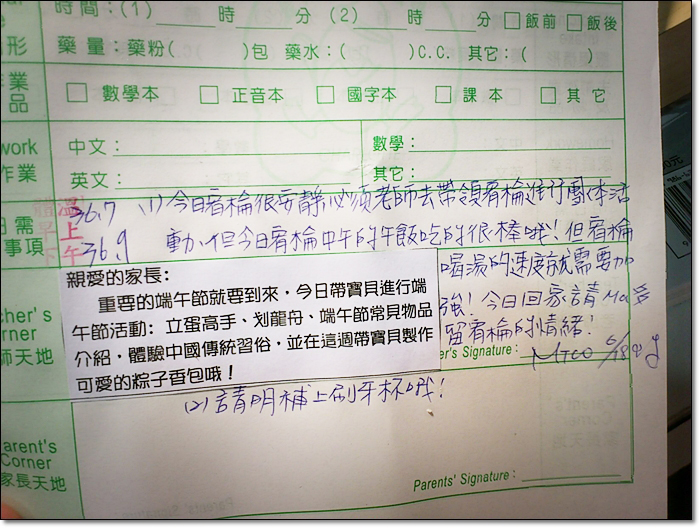 時間：(1) 時 分 (2) 時 分 □飯前 □飯後
藥量：藥粉( )包 藥水：( )C.C. 其它：( )
□ 數學本 □ 正音本 □ 國字本 □ 課本 □ 其它
work 中文： 數學：
作業 英文： 其它：
溫 上 下午
36.7 (1) 今日宥棆很安靜必須老師去帶領宥棆進行團体活
36.9 動，但今日宥棆中午的午飯吃的很棒哦！但宥棆
喝湯的速度就需要加
強！今日回家請
留宥棆的情緒！
日需
事項
親愛的家長：
重要的端午節就要到來，今日帶寶貝進行端
午節活動：立蛋高手、划龍舟、端午節常見物品
介紹，體驗中國傳統習俗，並在這週帶寶貝製作
可愛的粽子香包哦！
cher's
Corner
師天地
er's Signature：
6/18
(2) 請明補上刷牙杯哦！
arent's
Corner
家長天地
Parents' Signature：